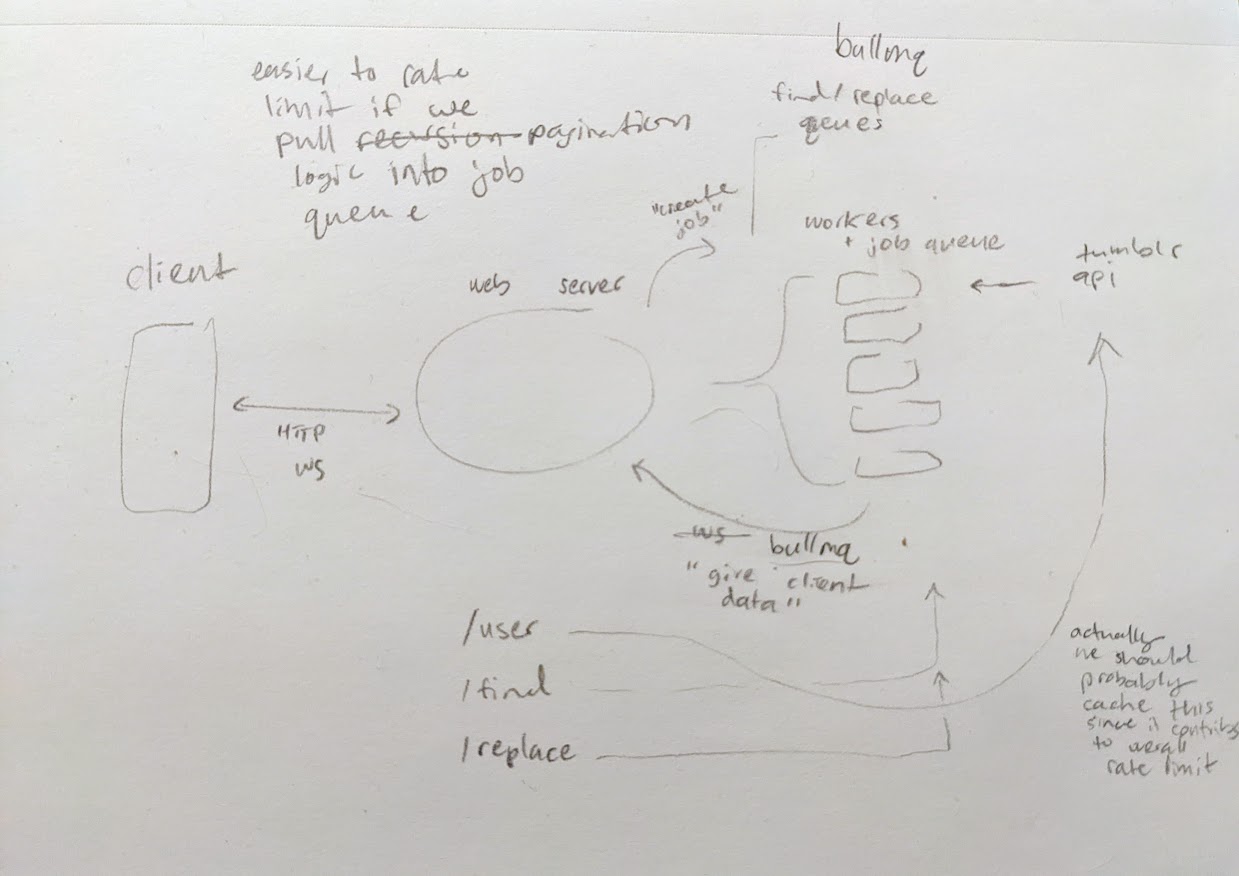 easier to rate
limit if we
pull recursion pagination
logic into job
queue
bullmq
find/replace
queues
"create
job"
workers
+ job queue
tumblr
api
client
web server
HTTP
WS
WS bullmq
"give client
data"
/user
/find
/replace
actually
we should
probably
cache this
since it contribs
to overall
rate limit